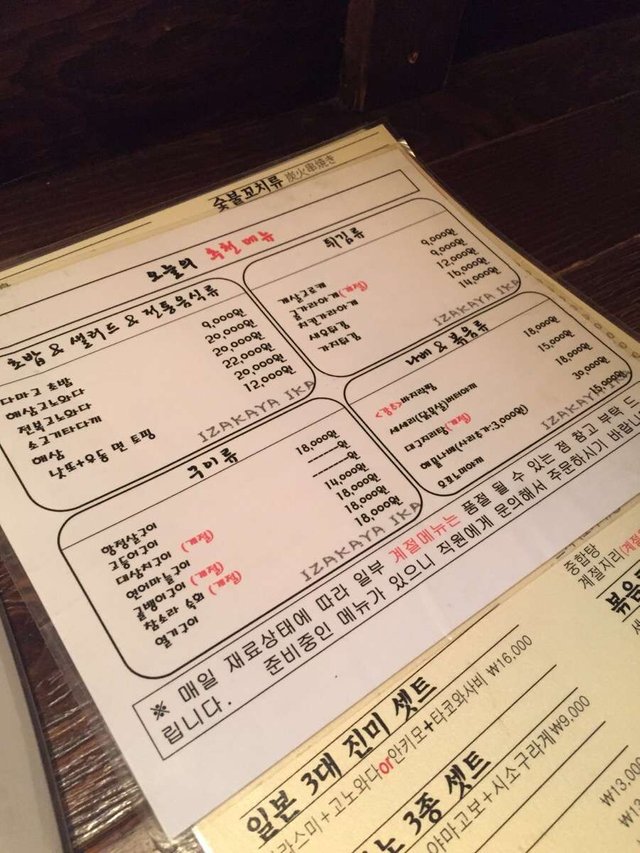 숯불꼬치류 炭火串焼き
오늘의 추천 메뉴
초밥 & 샐러드 & 전통음식류
다마고 초밥 9,000원
해삼고노와다 20,000원
전복고노와다 20,000원
소고기타다끼 22,000원
해삼 20,000원
낫또+우동 면 토핑 12,000원
IZAKAYA IKA
튀김류
게살고로케 9,000원
굴가라아게(계절) 9,000원
치킨가라아게 12,000원
새우튀김 16,000원
가지튀김 14,000원
IZAKAYA IKA
구이류
18,000원
고등어구이
대삼치구이 (계절)
14,000원
18,000원
(계절)
참소라 숙회 (계절) 18,000원
열기구이 18,000원
IZAKAYA IKA
나베 & 볶음류
바지락찜 18,000원
15,000원
대구지리탕(계절) 18,000원
해물나베(사리추가:3,000원) 30,000원
오코노미야끼 15,000원
IZAKAYA IKA
※ 매일 재료상태에 따라 일부 계절메뉴는 품절 될 수 있는 점 참고 부탁 드
립니다. 준비중인 메뉴가 있으니 직원에게 문의해서 주문하시기 바랍니
종합탕
계절지리(계절
볶음
일본 3대 진미 셋트
라스미+고노와다or안키모+타코와사비 ₩16,000
노 3종 셋트
야마고보+시소구라게 ₩9,000
₩13,000